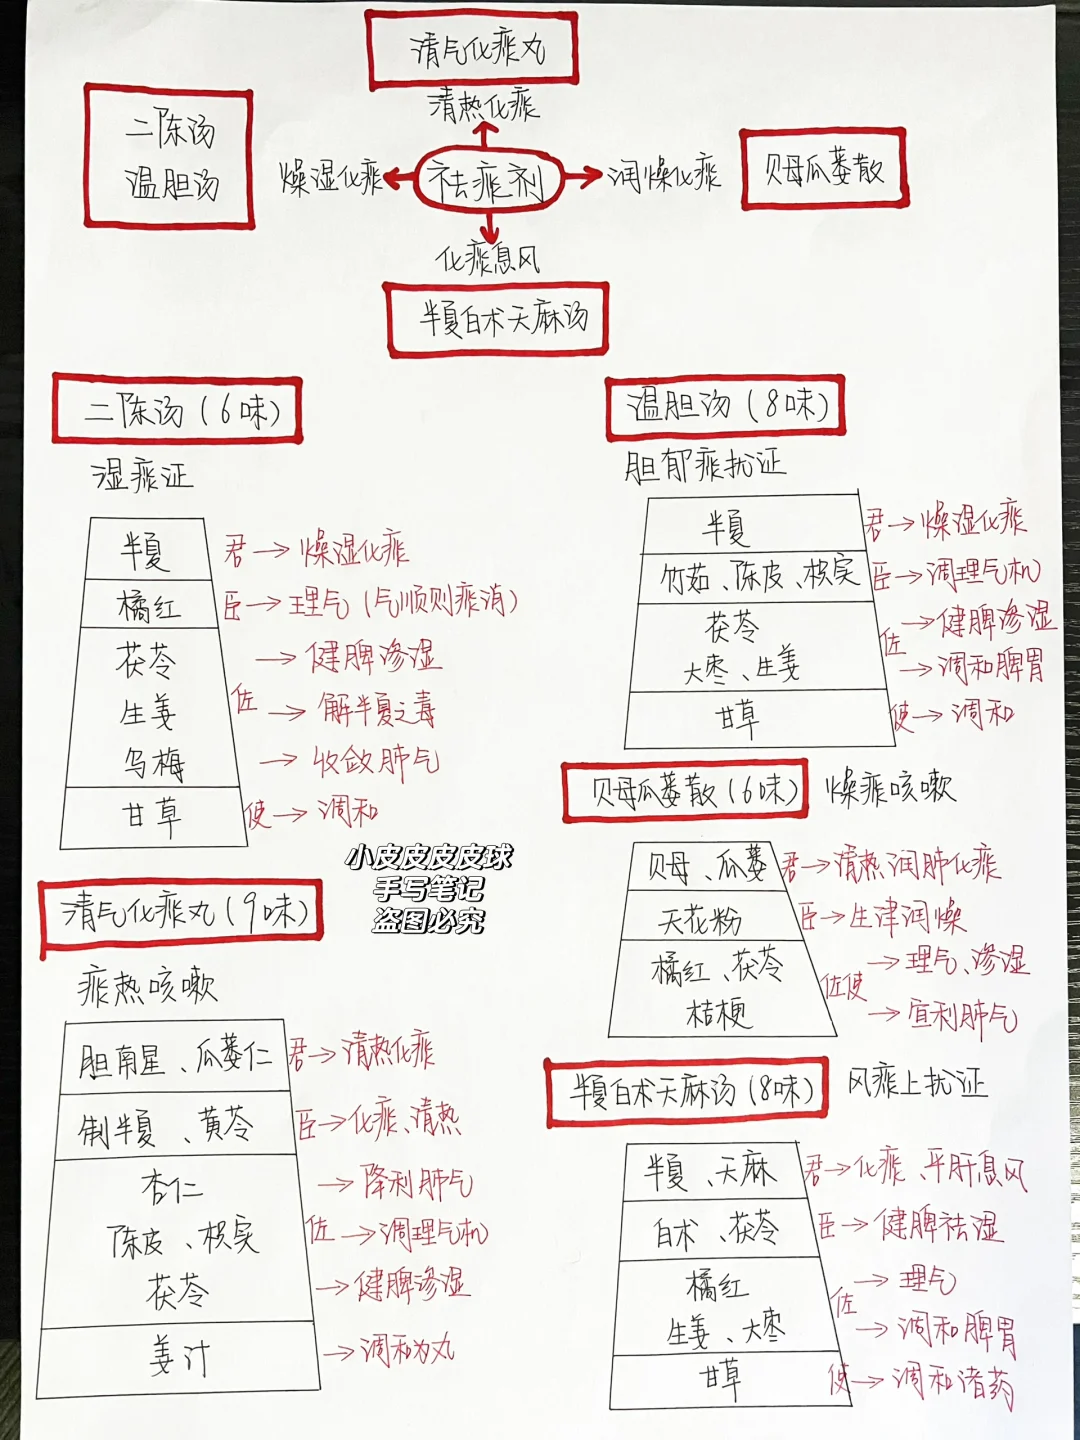 清气化痰丸
清热化痰
二陈汤
温胆汤
燥湿化痰
祛痰剂
润燥化痰
贝母瓜蒌散
化痰息风
半夏白术天麻汤
二陈汤(6味)
湿痰证
半夏 君→燥湿化痰
橘红 臣→理气(气顺则痰消)
茯苓 →健脾渗湿
生姜 佐→解半夏之毒
乌梅 →收敛肺气
甘草 使→调和
温胆汤(8味)
胆郁痰扰证
半夏 君→燥湿化痰
竹茹、陈皮、枳实 臣→调理气机
茯苓 佐→健脾渗湿
大枣、生姜 →调和脾胃
甘草 使→调和
小皮皮皮皮球
手写笔记
盗图必究
清气化痰丸(9味)
痰热咳嗽
胆南星、瓜蒌仁 君→清热化痰
制半夏、黄芩 臣→化痰、清热
杏仁 →降利肺气
陈皮、枳实 佐→调理气机
茯苓 →健脾渗湿
姜汁 →调和为丸
贝母瓜蒌散(6味) 燥痰咳嗽
贝母、瓜蒌 君→清热润肺化痰
天花粉 臣→生津润燥
橘红、茯苓 佐使→理气、渗湿
桔梗 →宣利肺气
半夏白术天麻汤(8味) 风痰上扰证
半夏、天麻 君→化痰、平肝息风
白术、茯苓 臣→健脾祛湿
橘红 佐→理气
生姜、大枣 →调和脾胃
甘草 使→调和诸药